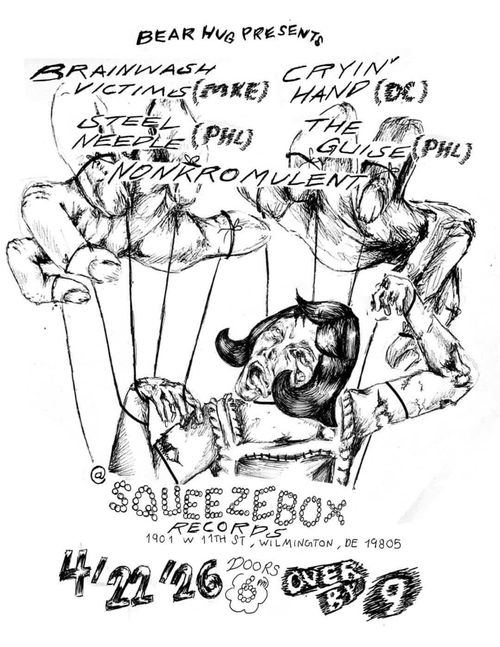 BEAR HUG PRESENTS
BRAINWASH VICTIMS (MKE)
CRYIN' HAND (DC)
STEEL NEEDLE (PHL)
THE GUISE (PHL)
NONKROMULENT
@
SQUEEZEBOX
RECORDS
1901 W 11TH ST, WILMINGTON, DE 19805
4/22/'26 DOORS 6PM OVER BY 9